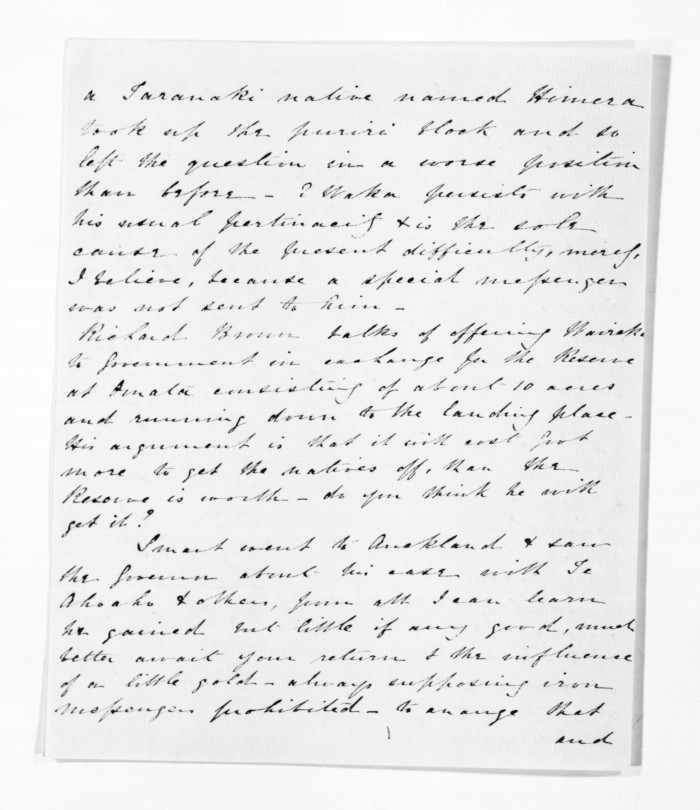 a Taranaki native named Himera
took up the puriri block and so
left the question in a worse position
than before - ? Waka persists with
his usual pertinacity & is the sole
cause of the present difficulty, merely,
I believe, because a special messenger
was not sent to him -
Richard Brown talks of offering Waireka
to Government in exchange for the Reserve
at consisting of about 10 acres
and running down to the landing place -
His argument is that it will cost Govt
more to get the natives off, than the
Reserve is worth - do you think he will
get it?
Smart went to Auckland & saw
the Governor about his case with Te
Ahoaho & others, from all I can learn
he gained but little if any good, much
better await your return & the influence
of a little gold - always supposing iron
messenger prohibited - to arrange that
and